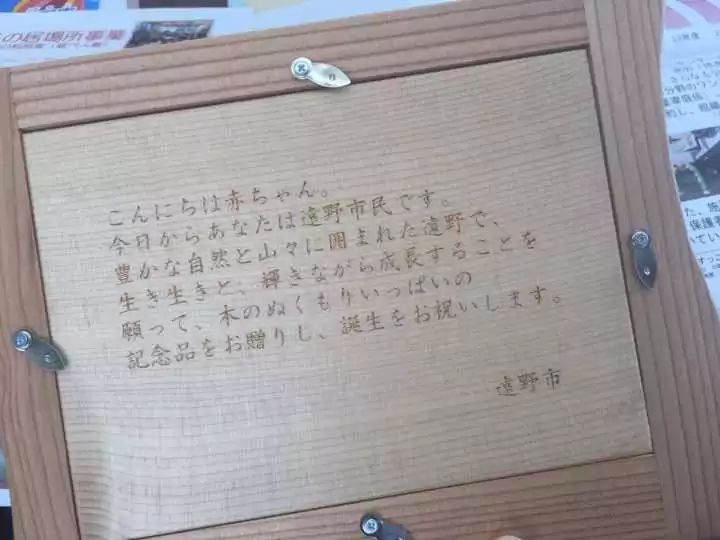 の居場所事業
こんにちは赤ちゃん。
今日からあなたは遠野市民です。
豊かな自然と山々に囲まれた遠野で、
生き生きと、輝きながら成長することを
願って、木のぬくもりいっぱいの
記念品をお贈りし、誕生をお祝いします。
遠野市